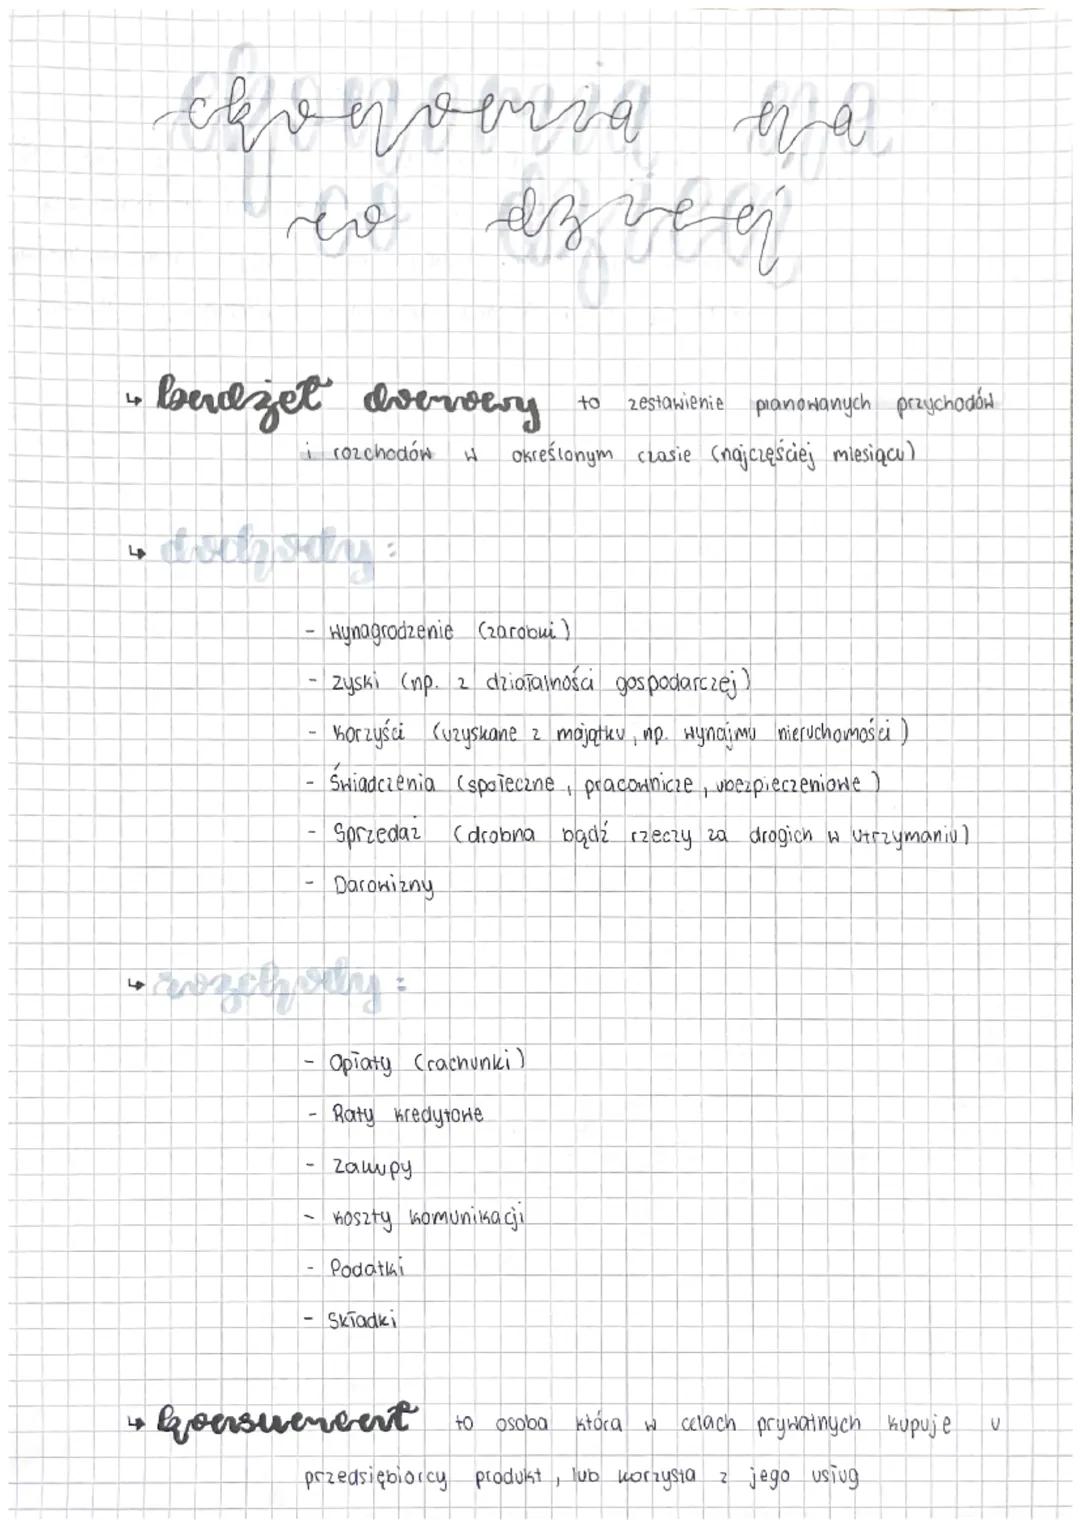 ekonomia na
co dzień
↳ budżet domowy to zestawienie planowanych przychodów
i rozchodów w określonym czasie (najczęściej miesiącu)
↳ dochody:
- Wynagrodzenie (zarobki)
- Zyski (np. z działalności gospodarczej)
- Korzyści (uzyskane z majątku, np. wynajmu nieruchomości)
- Świadczenia (społeczne, pracownicze, ubezpieczeniowe)
- Sprzedaż (drobna bądź rzeczy za drogich w utrzymaniu)
- Darowizny
↳ rozchody:
- Opłaty (rachunki)
- Raty kredytowe
- Zakupy
- Koszty komunikacji
- Podatki
- Składki
↳ konsument to osoba która w celach prywatnych kupuje u
przedsiębiorcy produkt, lub korzysta z jego usług